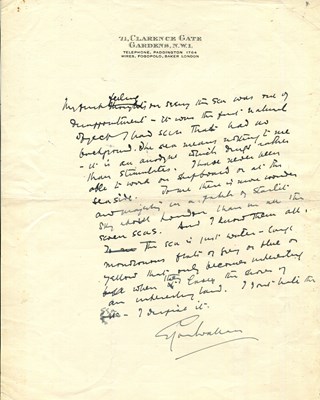 71, CLARENCE GATE
GARDENS, N.W.1.
TELEPHONE, PADDINGTON 1704
WIRES, FOGOPOLO, BAKER LONDON
feeling
My first thought on seeing the sea was one of
disappointment - it was the first natural
object I had seen that had no
background. The sea means nothing to me
- it is an anodyne which drugs rather
than stimulates. I have never been
able to work on shipboard or at the
seaside. To me there is more wonder
and majesty in a patch of starlit
sky above London than in all the
seven seas. And I know them all.
The sea is just water - large
monotonous flats of grey or blue or
yellow that only becomes interesting
when it laves the shores of
an interesting land. I don't hate the
sea - I despise it.